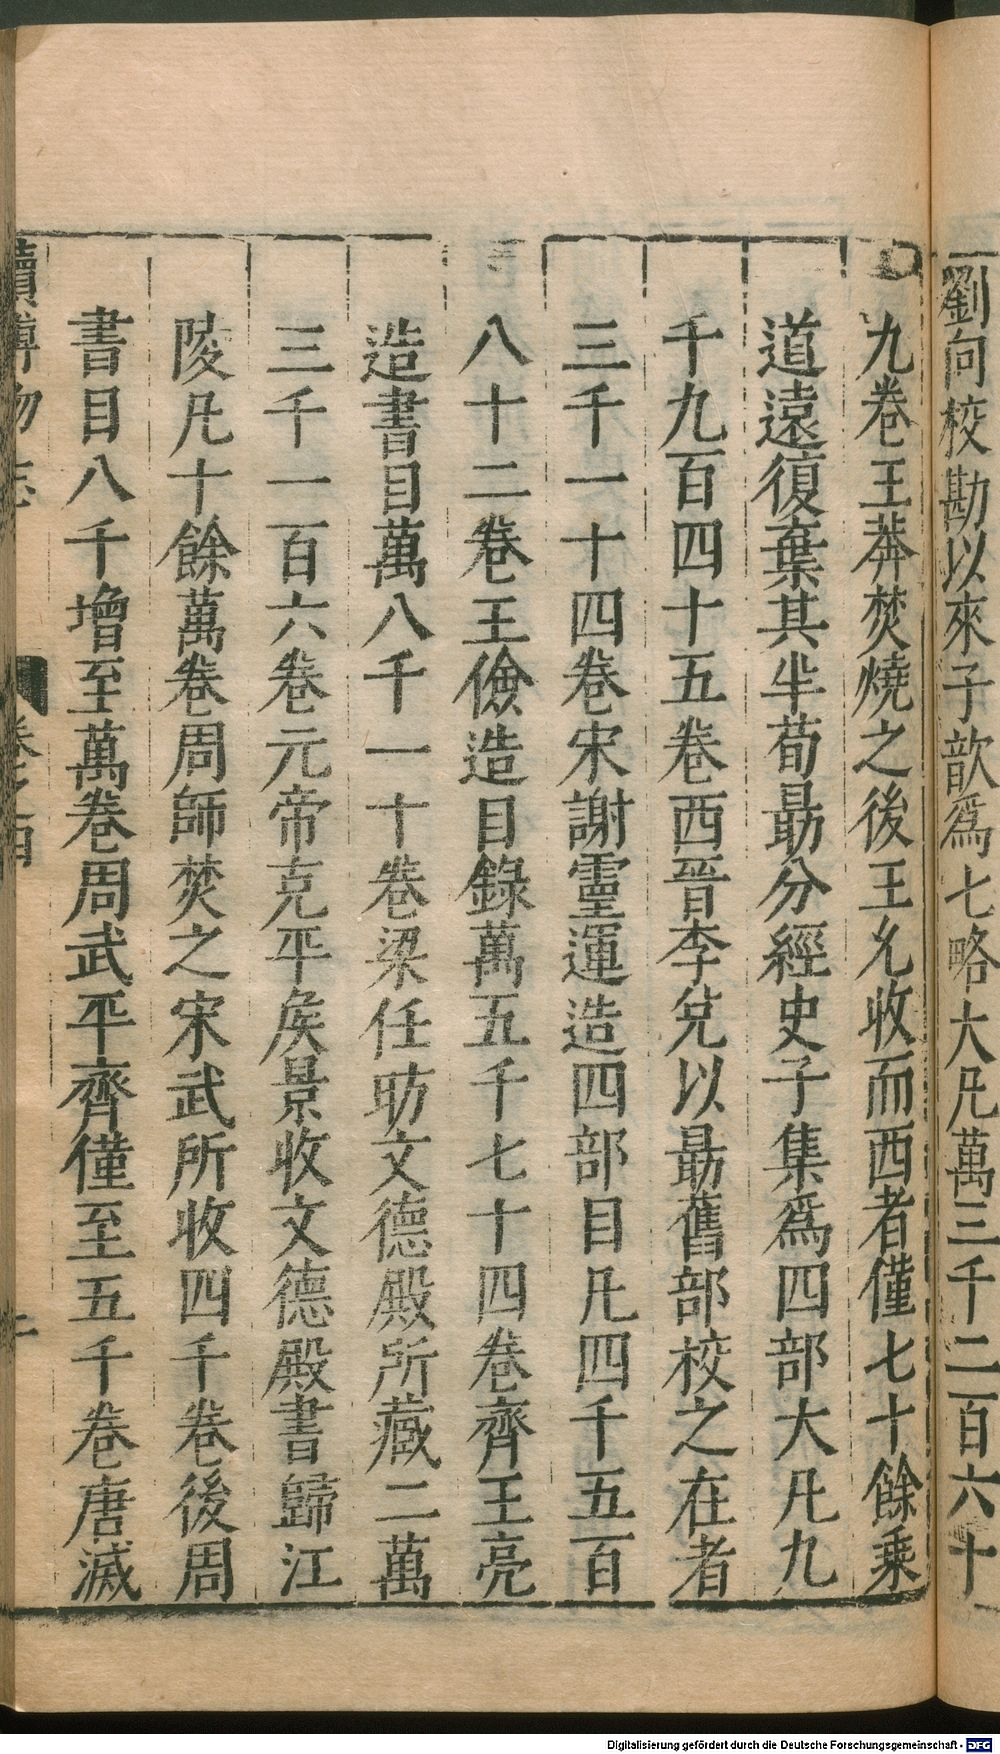 劉向校勘以來子歆爲七略大凡萬三千二百六十
九卷王莽焚燒之後王允收而西者僅七十餘乘
道遠復棄其半荀勗分經史子集爲四部大凡九
千九百四十五卷西晉李兊以勗舊部校之在者
三千一十四卷宋謝靈運造四部目凡四千五百
八十二卷王儉造目錄萬五千七十四卷齊王亮
造書目萬八千一十卷梁任昉文德殿所藏二萬
三千一百六卷元帝克平矦景收文德殿書歸江
陵凡十餘萬卷周師焚之宋武所收四千卷後周
書目八千增至萬卷周武平齊僅至五千卷唐滅
續博物志
卷之四
Digitalisierung gefördert durch die Deutsche Forschungsgemeinschaft - DFG